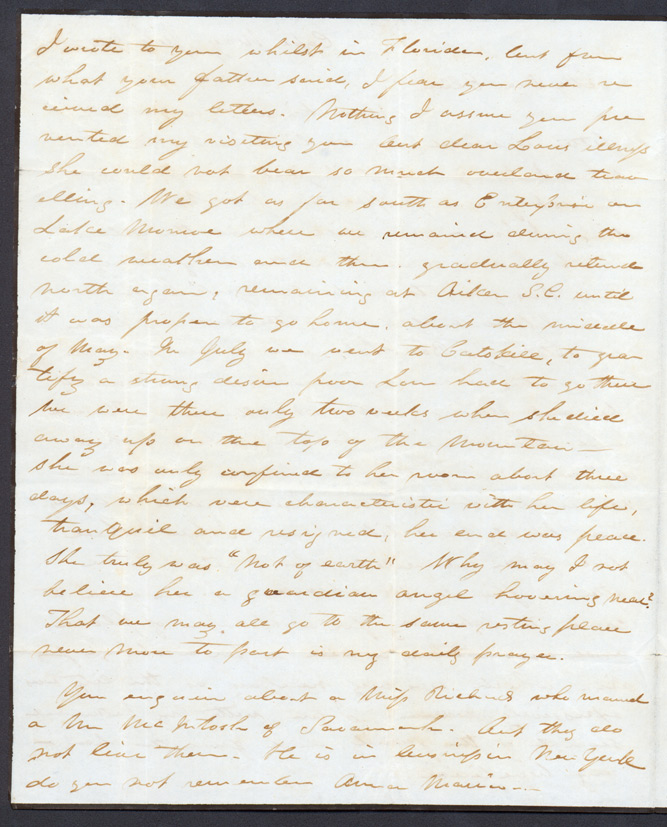 I wrote to you whilst in Florida, but from
what your father said, I fear you never re
ceived my letters. Nothing I assure you pre
vented my visiting you but dear Lous illness
she could not bear so much overland trav
elling. We got as far south as Enterprise on
Lake Monroe where we remained during the
cold weather and then gradually returnd
north again, remaining at Aiken S.C. until
it was proper to go home about the middle
of May. In July we went to Catskill, to gra
tify a strong desire poor Lou had to go there
We were there only two weeks when she died
away up on the top of the mountain—
She was only confined to her room about three
days, which were characteristic with her life,
tranquil and resigned, her end was peace.
She truly was "not of earth" Why may I not
believe her a guardian angel hovering near?
That we may all go to the same resting place
never more to part is my daily prayer.
You enquire about a Miss Richards who married
a Mr McIntosh of Savannah. But they do
not live there. He is in business in New York
do you not remember Anna Maria—